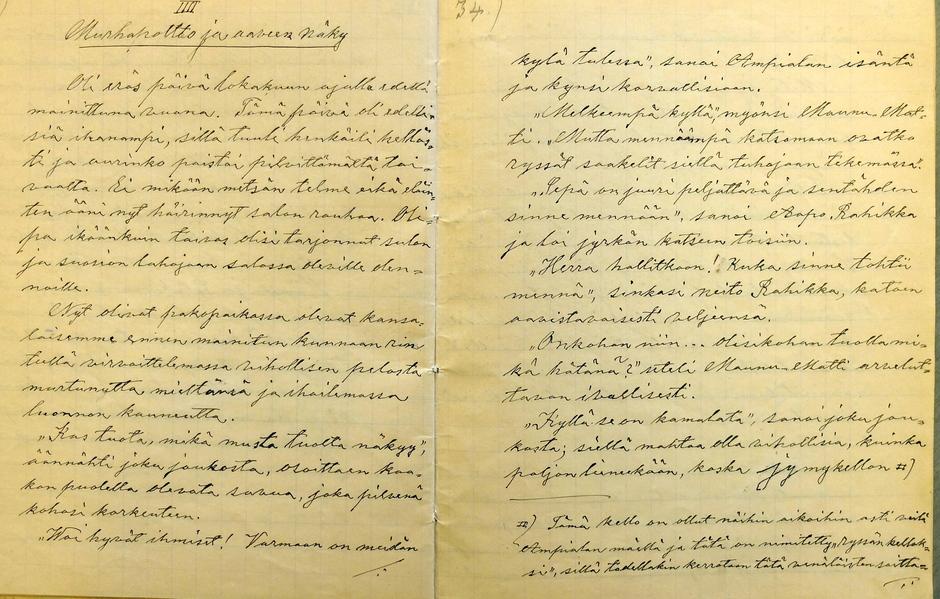 IIII
Murhapoltto ja aaveen näky
Oli eräs päivä lokakuun ajalla edellä
mainittuna vuona. Tämä päivä oli edelli-
siä ihanampi, sillä tuuli henkäili helläs-
ti ja aurinko paistoi pilvittömältä tai-
vaalta. Ei mikään metsän telme eikä eläin-
ten ääni nyt häirinnyt salon rauhaa. Oli-
pa ikäänkuin taivas olisi tarjonnut sulon
ja suosion lahojaan salossa oleville olen-
noille.
Nyt olivat pakopaikassa olevat kansa-
laisemme ennen mainitun kunnaan rin
teellä virvoittelemassa vihollisen pelosta
murtunutta mieltänsä ja ihailemassa
luonnon kauneutta.
"Kas tuota, mikä musta tuolta näkyy",
äännähti joku joukosta, osoittaen kaa-
kon puolella olevata savua, joka pilvenä
kohosi korkeuteen.
"Woi hyvät ihmiset! Varmaan on meidän
34)
kylä tulessa", sanoi Ampialan isäntä
ja kynsi korvallisiaan.
"Melkeempä kyllä", myönsi Maunu-Mat-
ti. "Mutta mennäämpä katsomaan ovatko
ryssät saakelit siellä tuhojaan tekemässä".
"Sepä on juuri peljättävä ja sentähden
sinne mennään", sanoi Aapo Rahikka
ja loi jyrkän katseen toisiin.
"Herra hallitkoon! Kuka sinne tohtii
mennä", sinkasi neito Rahikka, katsoen
aavistavaisesti veljeensä.
"Onkohan niin... olisikohan tuolla mi-
kä hätänä?" uteli Maunu-Matti arvelut-
tavan ivallisesti.
"Kyllä se on kamalata", sanoi joku jou-
kosta; siellä mahtaa olla vihollisia, kuinka
paljon lieneekään, koska jymykellon ⌗)
⌗) Tämä kello on ollut näihin aikoihin asti vielä
Ampialan mäellä ja tätä on nimitetty "ryssän kellok-
si", sillä todellakin kerrotaan tätä venäläisten soitta-